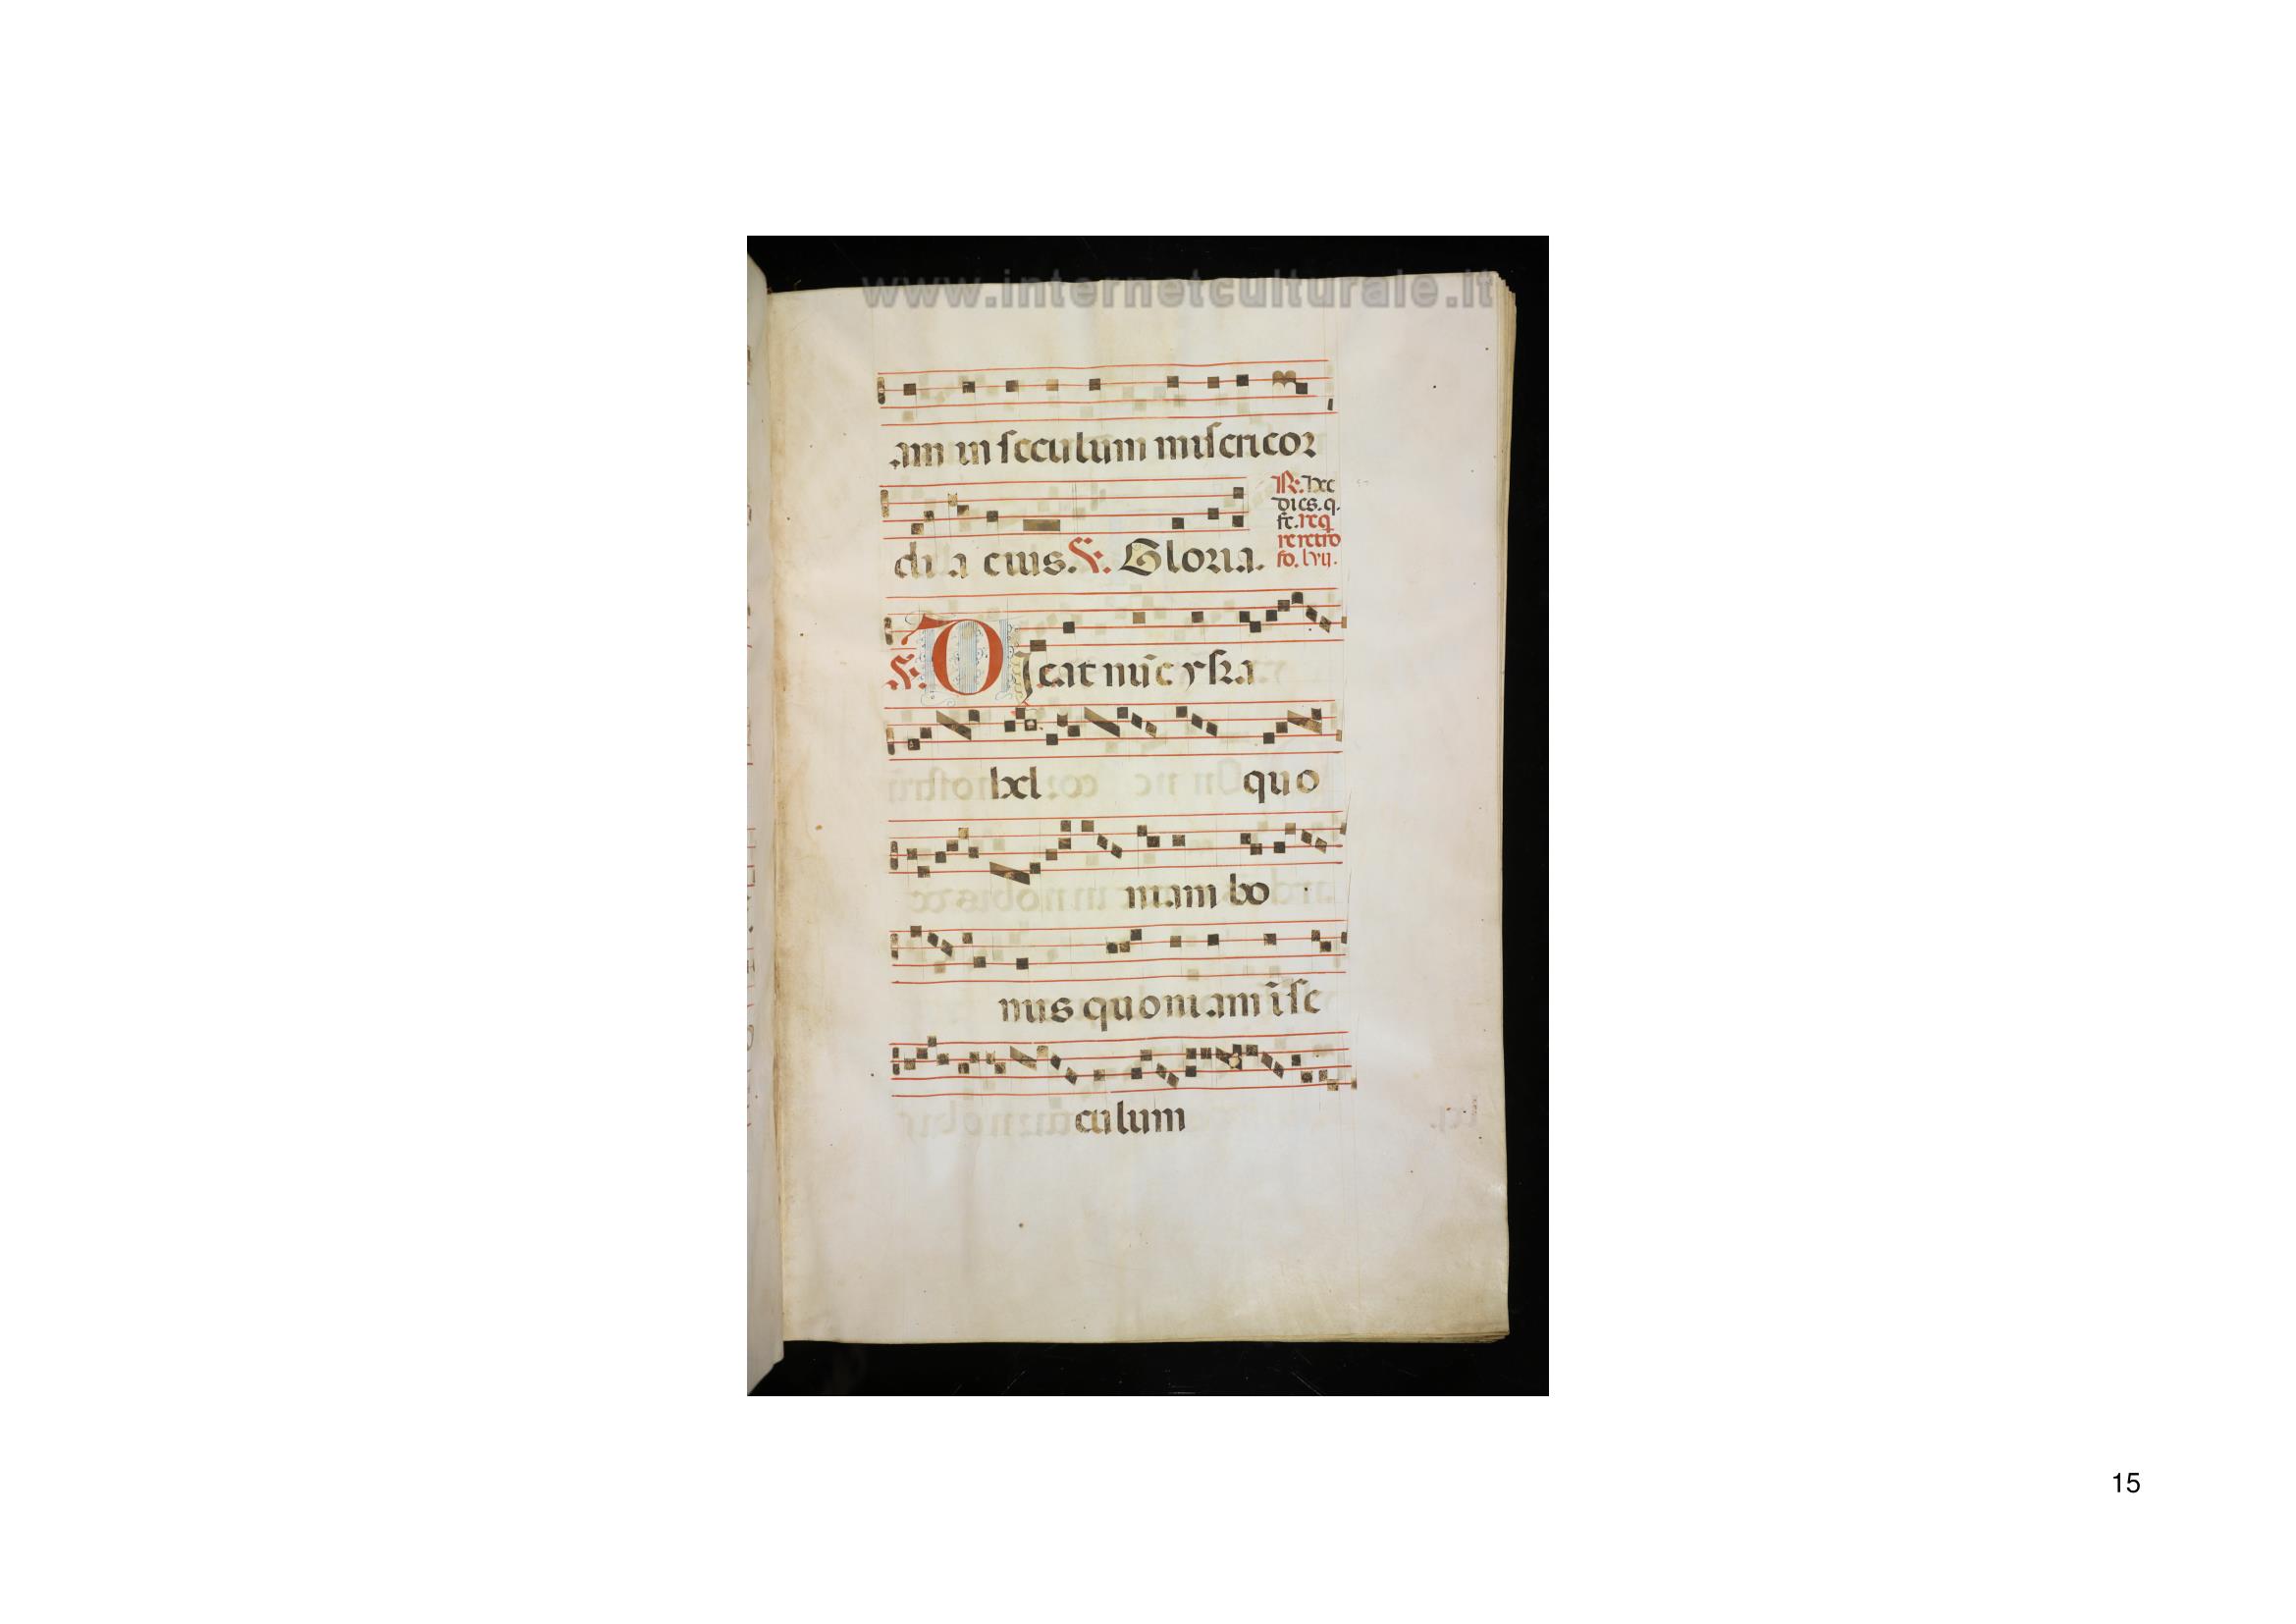 www.internetculturale.it
am in seculum misericor
di a eius. ℣. Gloria.
℟. hec
dies. q̄.
fc. req̄
re retro
fo. lvij.
℣. Dicat nūc ysra
hel quo
niam bo
nus quoniam ī se
culum
15